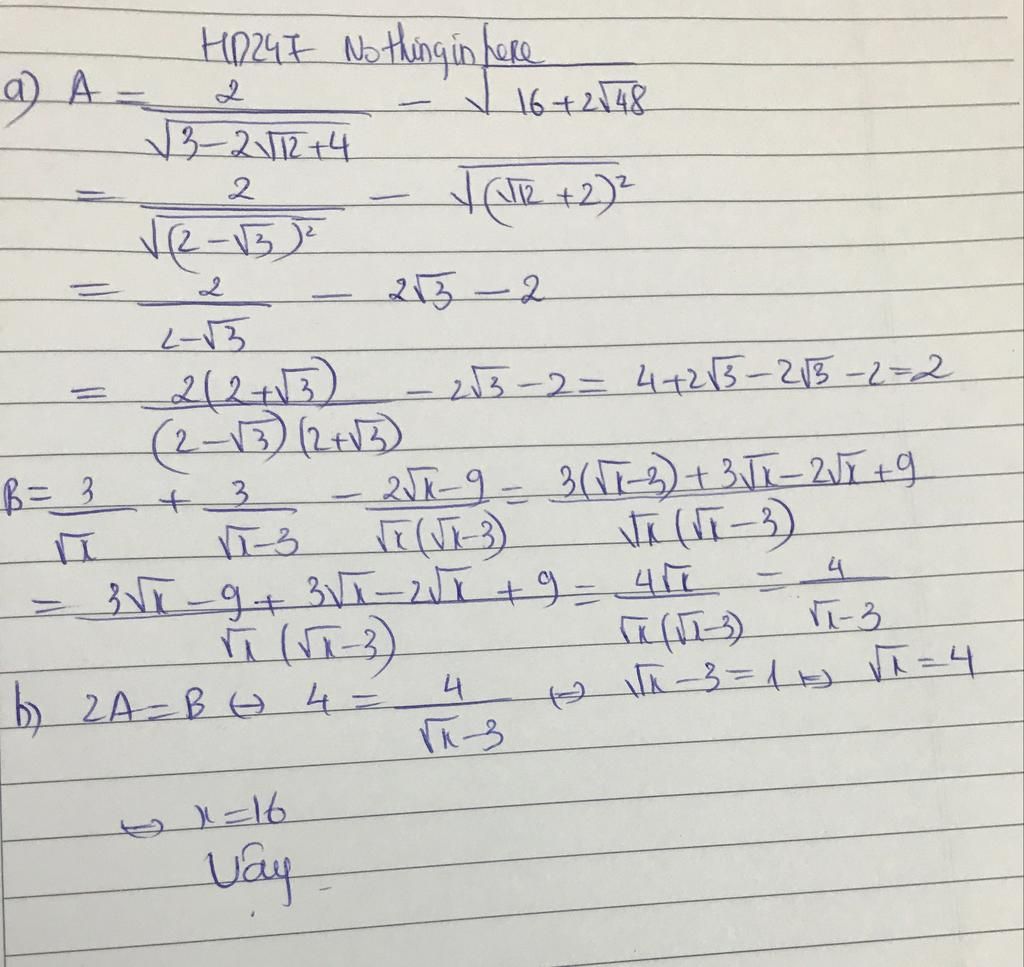 HD247 Nothing in here
a) A = 2/√(3-2√12+4) - √(16+2√48)
= 2/√((2-√3)²) - √((√12+2)²)
= 2/(2-√3) - 2√3 - 2
= 2(2+√3)/((2-√3)(2+√3)) - 2√3 - 2 = 4+2√3-2√3-2=2
B = 3/√x + 3/(√x-3) - (2√x-9)/(√x(√x-3)) = (3(√x-3)+3√x-2√x+9)/(√x(√x-3))
= (3√x-9+3√x-2√x+9)/(√x(√x-3)) = 4√x/(√x(√x-3)) = 4/(√x-3)
b) 2A=B ⇔ 4 = 4/(√x-3) ⇔ √x-3=1 ⇔ √x=4
⇔ x=16
Vậy